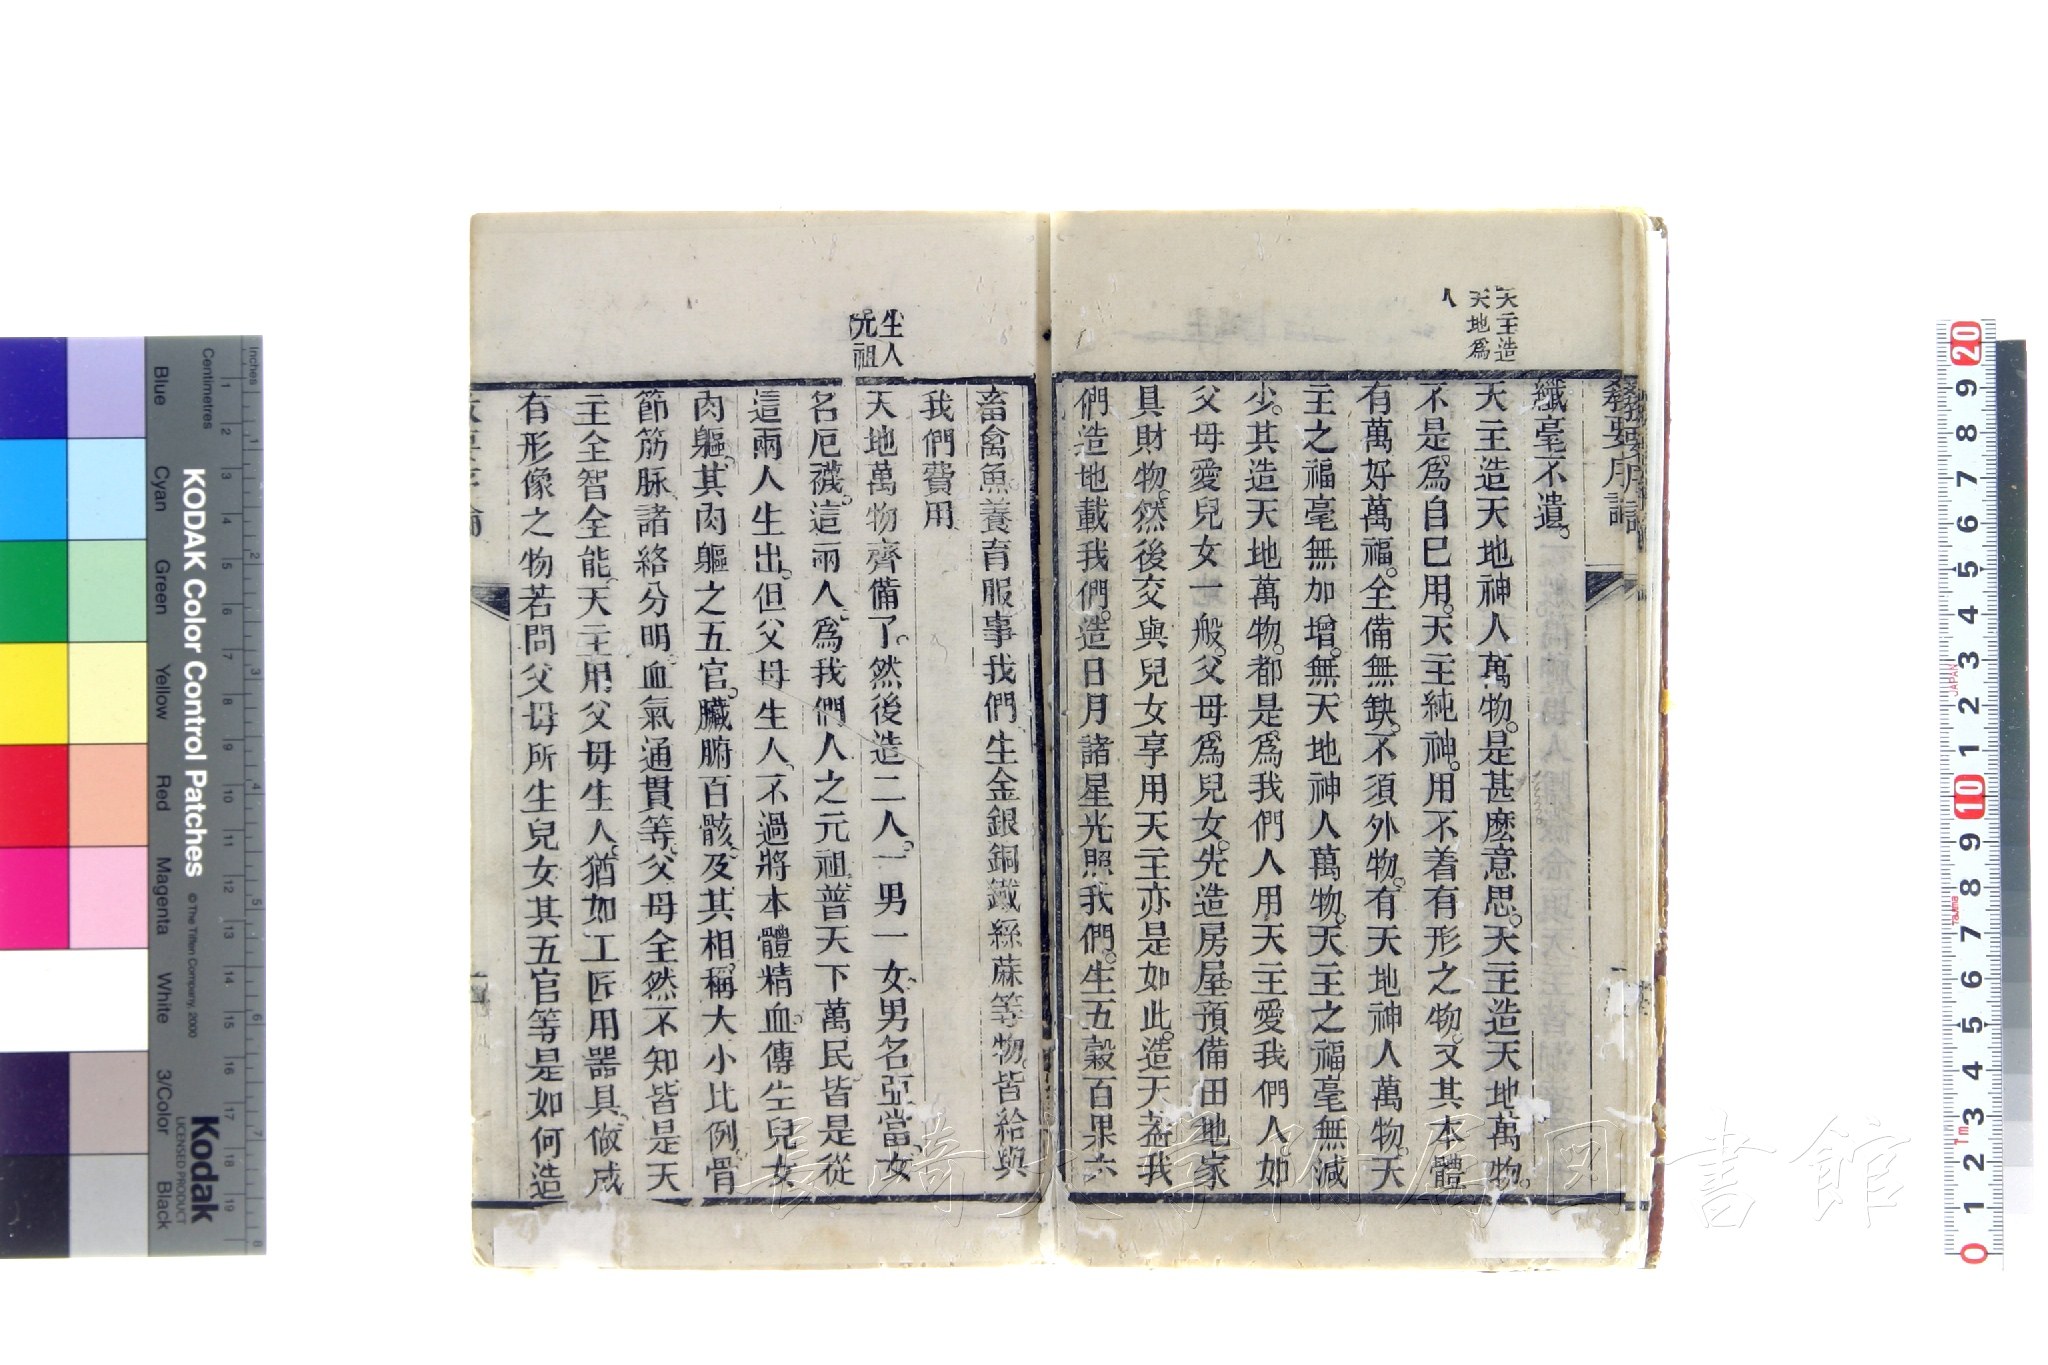 教要序論
天主造
天地爲
人
纖毫不遺。
天主造天地神人萬物。是甚麽意思。天主造天地萬物。
不是爲自已用。天主純神。用不着有形之物。又其本體
有萬好萬福。全備無缺。不須外物。有天地神人萬物。天
主之福毫無加增。無天地神人萬物。天主之福毫無減
少。其造天地萬物。都是爲我們人用。天主愛我們人。如
父母愛兒女一般。父母爲兒女。先造房屋。預備田地家
具財物。然後交與兒女享用。天主亦是如此。造天葢我
們。造地載我們。造日月諸星光照我們。生五穀百果六
畜禽魚。養育服事我們。生金銀銅鐵絲蔴等物。皆給與
我們費用。
生人
元祖
天地萬物齊備了。然後造二人。一男一女。男名亞當。女
名厄襪。這兩人。爲我們人之元祖。普天下萬民。皆是從
這兩人生出。但父母生人。不過將本體精血。傳生兒女
肉軀。其肉軀之五官。臟腑百骸。及其相稱大小比例。骨
節筋脉。諸絡分明。血氣通貫等。父母全然不知。皆是天
主全智全能。天主用父母生人。猶如工匠用器具。做成
有形像之物。若問父母所生兒女。其五官等是如何造
教要序論
KODAK Color Control Patches
© The Tiffen Company, 2000
Kodak
LICENSED PRODUCT
Inches 1 2 3 4 5 6 7 8
Centimetres 1 2 3 4 5 6 7 8 9 10 11 12 13 14 15 16 17 18 19
Blue Cyan Green Yellow Red Magenta White 3/Color Black
20 9 8 7 6 5 4 3 2 1 10 9 8 7 6 5 4 3 2 1 0
JAPAN
Tajima
1m
長崎大学附属図書館